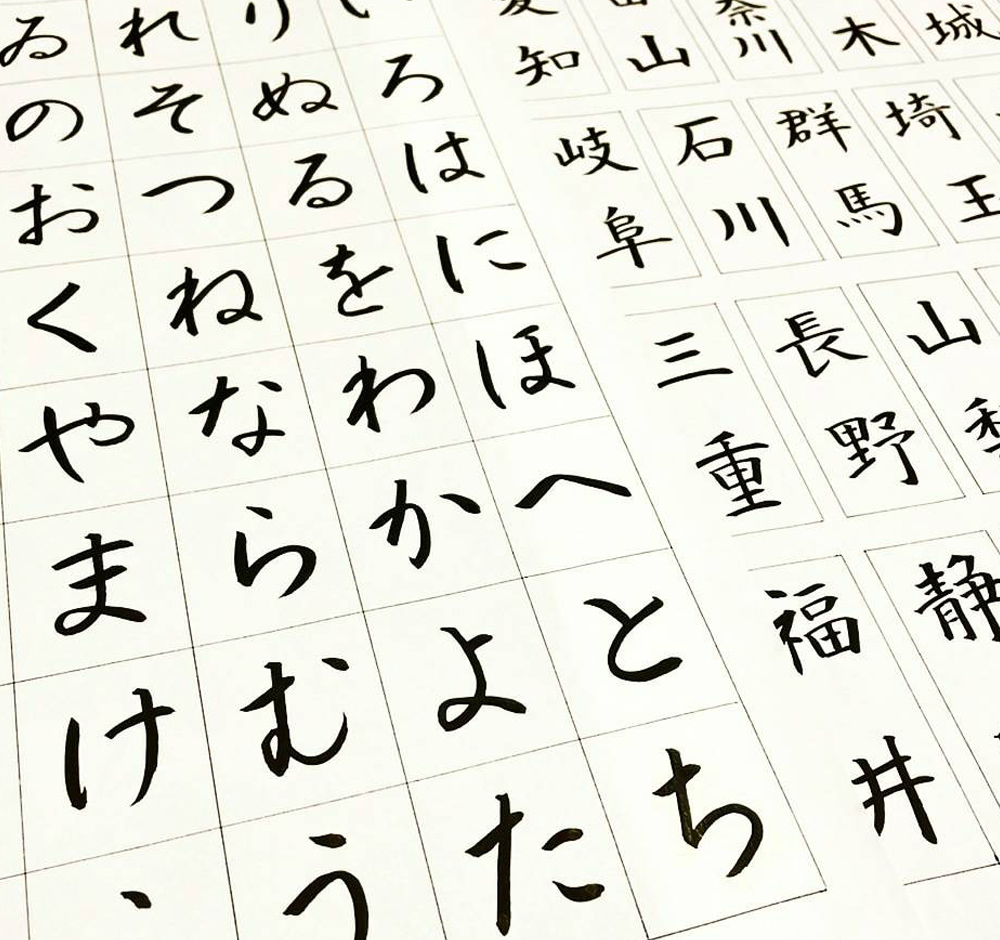 城
木
奈川
山
愛知
埼玉
群馬
石川
岐阜
山梨
長野
三重
静
福井
いろはにほへとち
りぬるをわかよた
れそつねならむう
ゐのおくやまけ